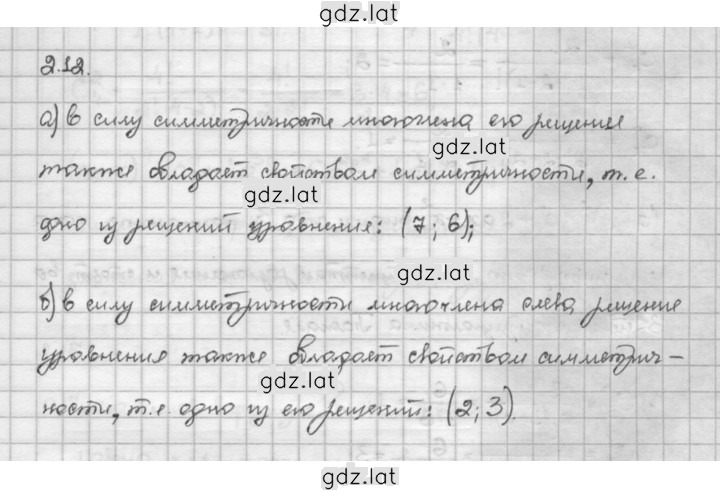 gdz.lat
2.12.
а) в силу симметричности многочлена его решение
также обладает свойством симметричности, т.е.
gdz.lat
gdz.lat
одно из решений уравнения: (7; 6);
gdz.lat
б) в силу симметричности многочлена слева решение
уравнения также обладает свойством симметрич-
gdz.lat
ности, т.е. одно из его решений: (2; 3).
gdz.lat